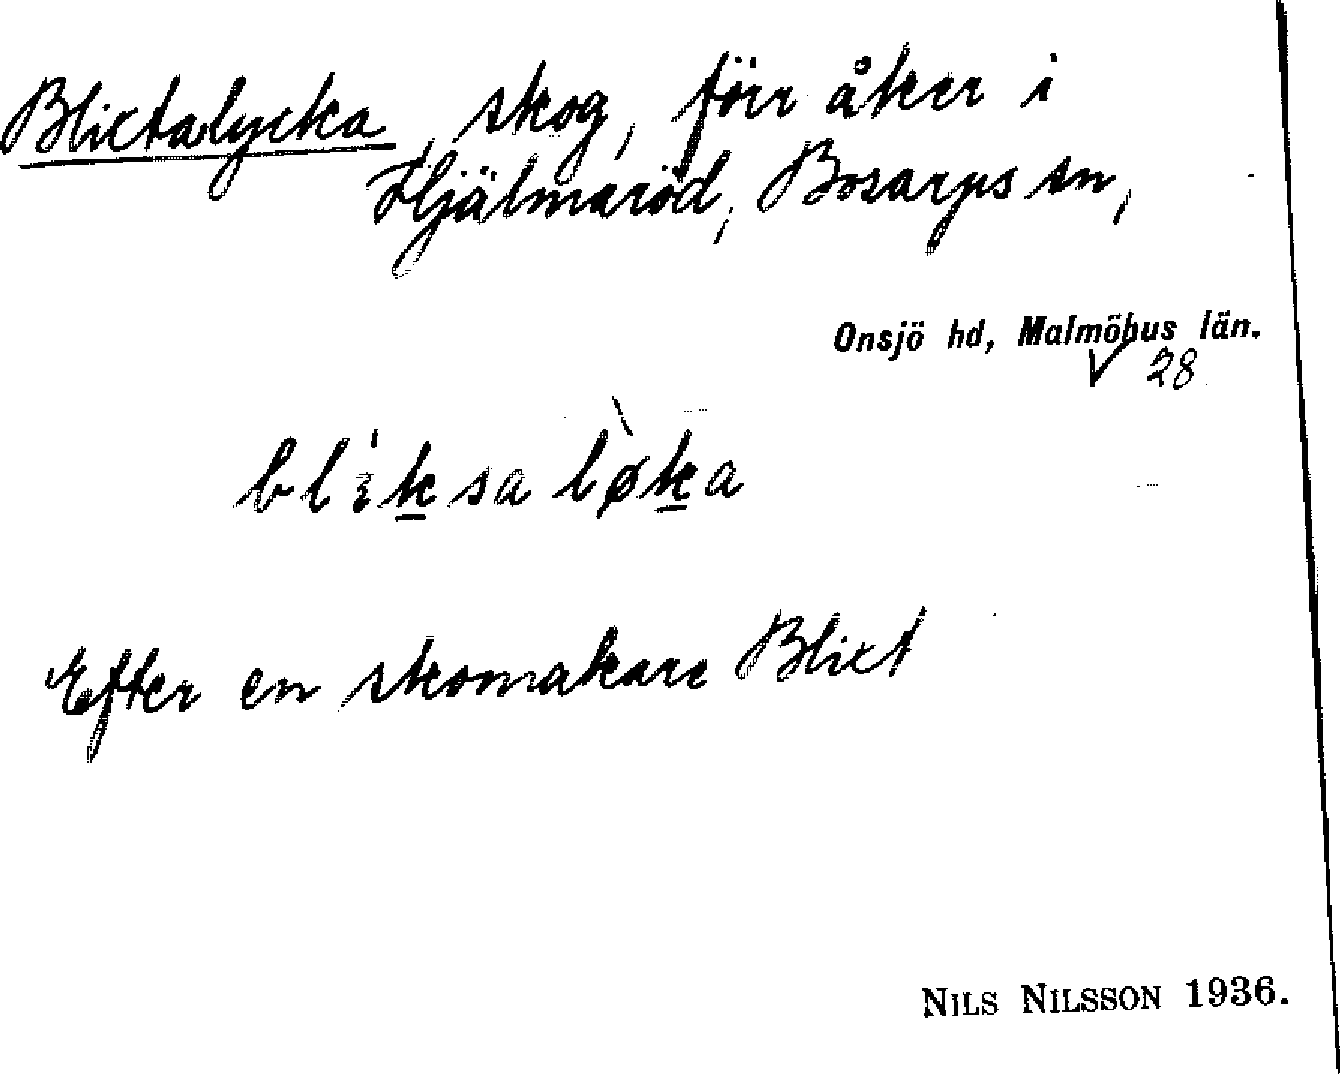 Blixtalycka, skog, förr åker i
Hjälmaröd, Bosarps sn,
Onsjö hd, Malmöhus län.
V 28
bliksa løka
Efter en skomakare Blixt
NILS NILSSON 1936.